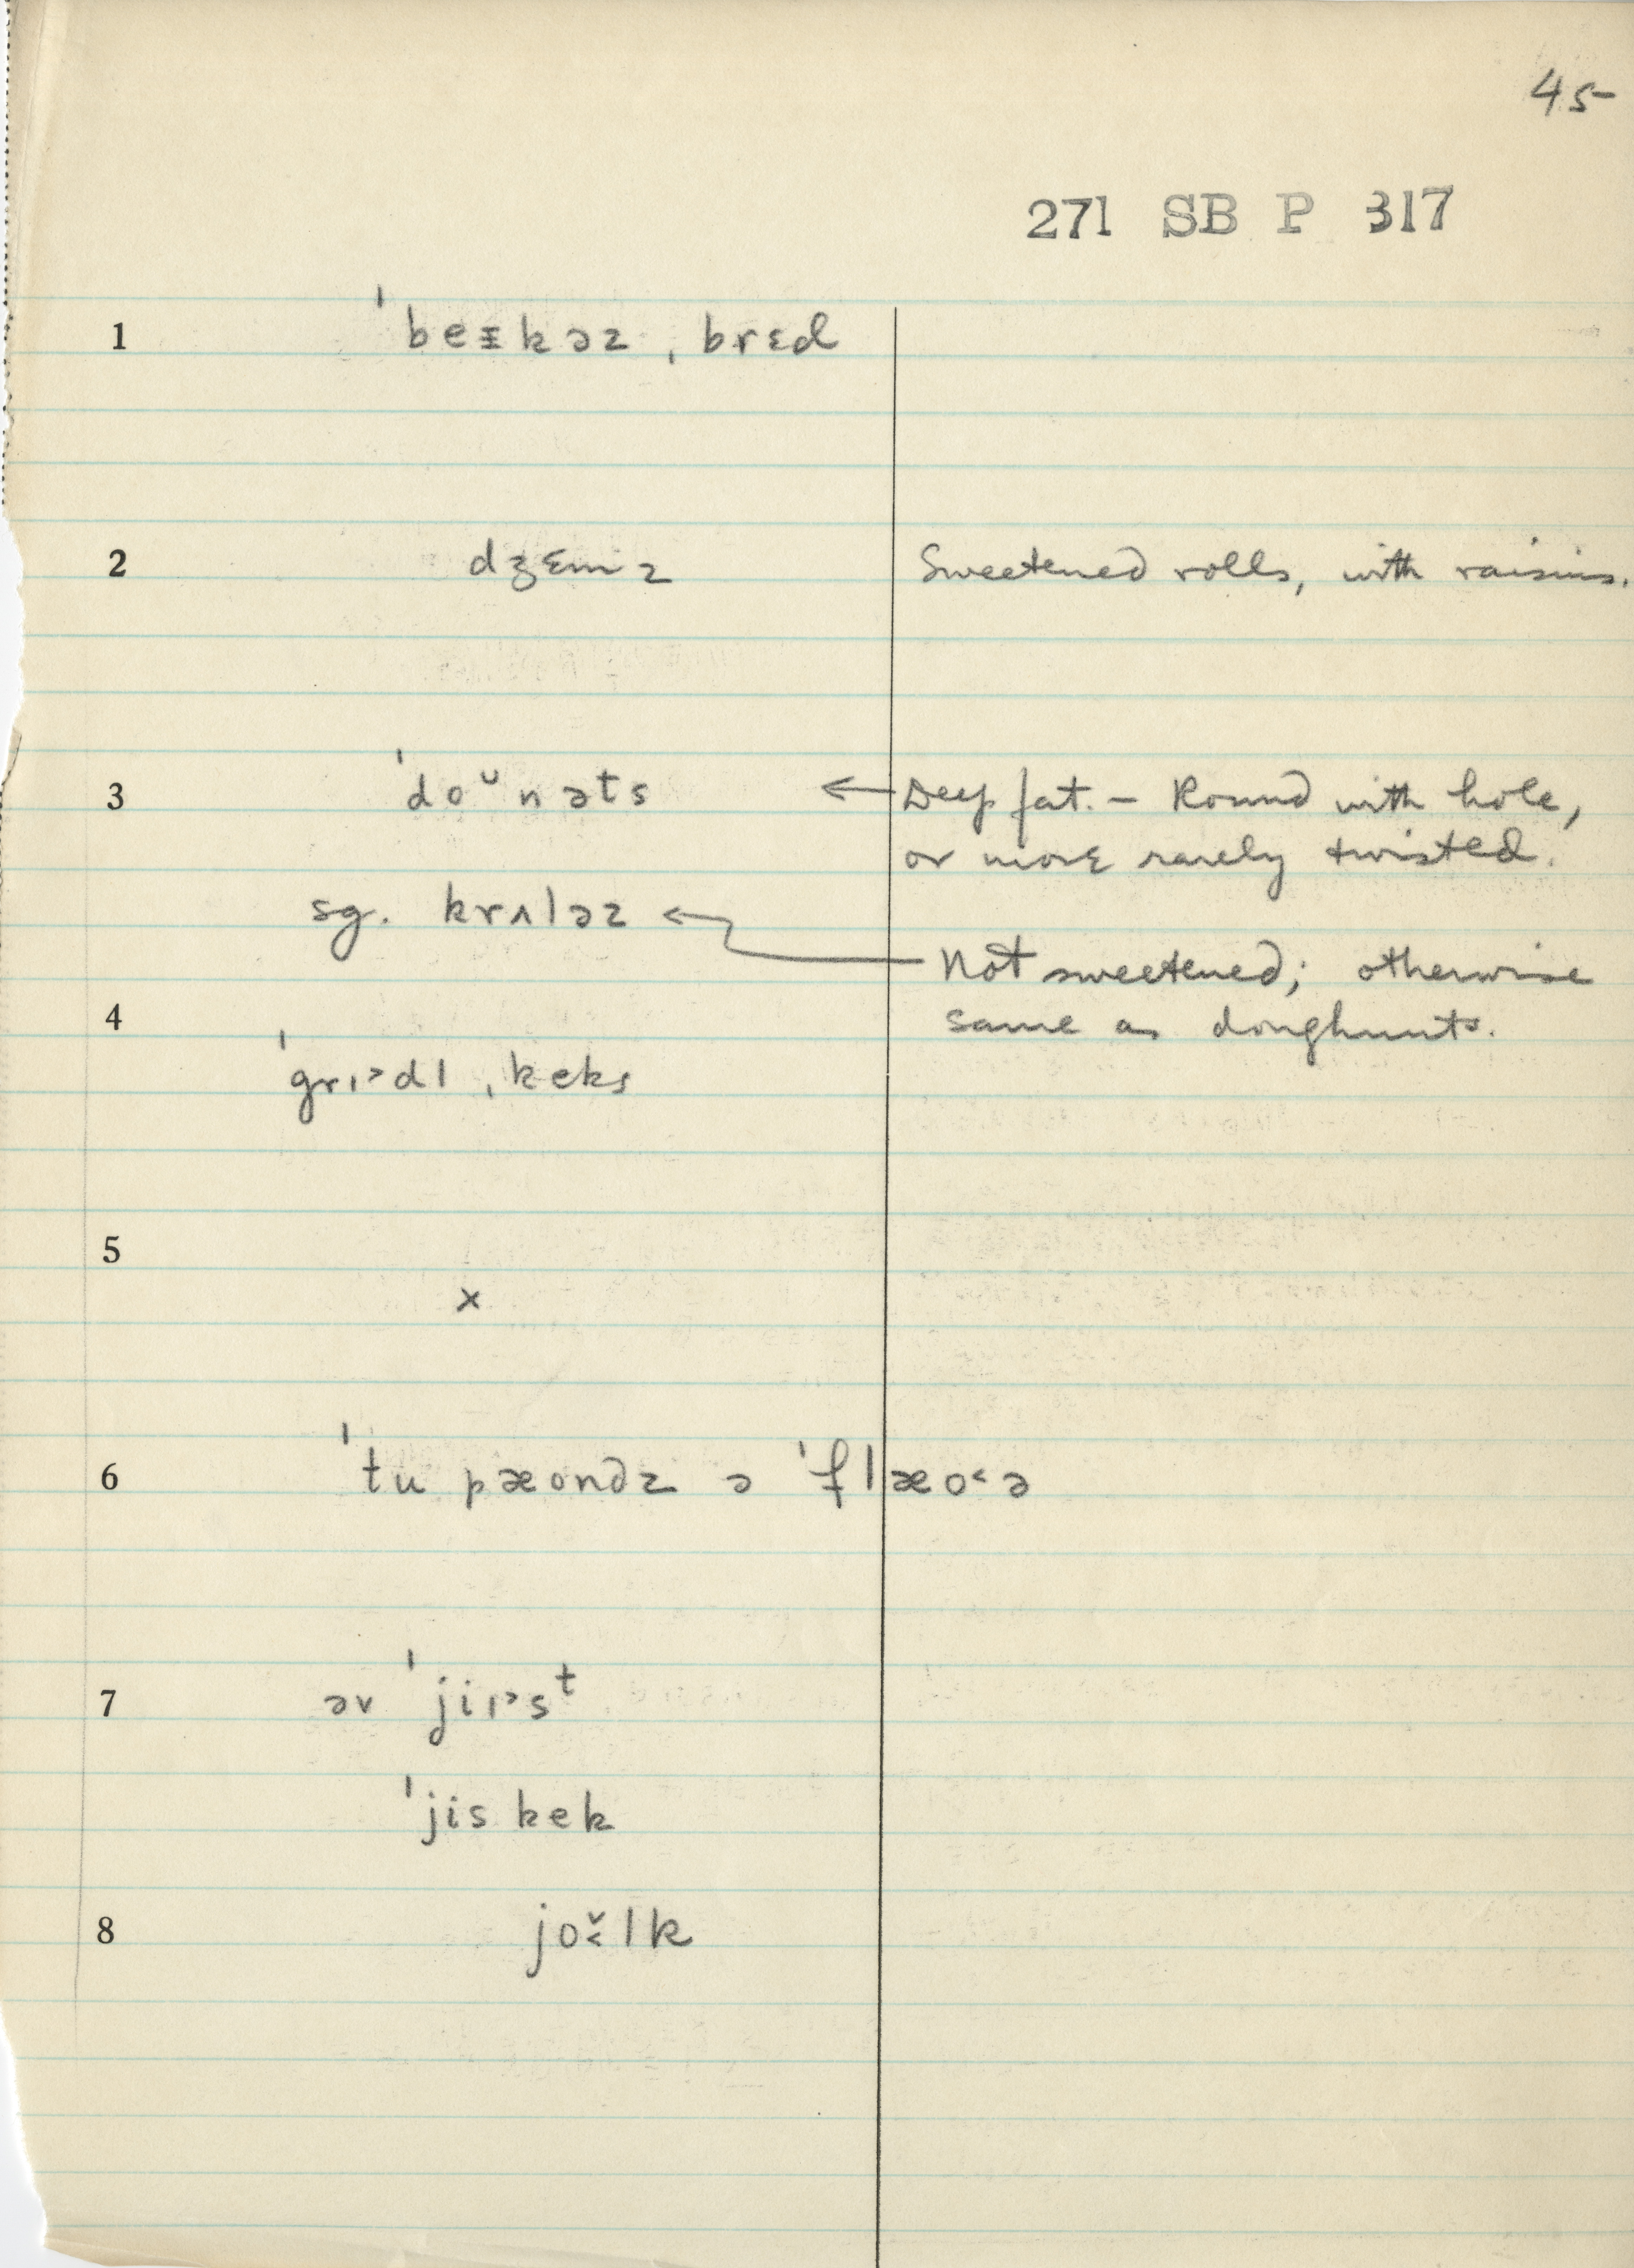 45
271 SB P 317
1 ˈbeᵻkəz ˌbrɛd
2 dʒɛmz Sweetened rolls, with raisins.
3 ˈdoᵕnəts ← Deep fat. – Round with hole,
or more rarely twisted.
sg. krʌləz ← Not sweetened; otherwise
same as doughnuts.
4
ˈgrɪ˃dl ˌkeks
5
x
6 ˈtu pæondz ə ˈflæo˂ə
7 əv ˈjiɪ˃sᵗ
ˈjis kek
8 jo˂̌lk